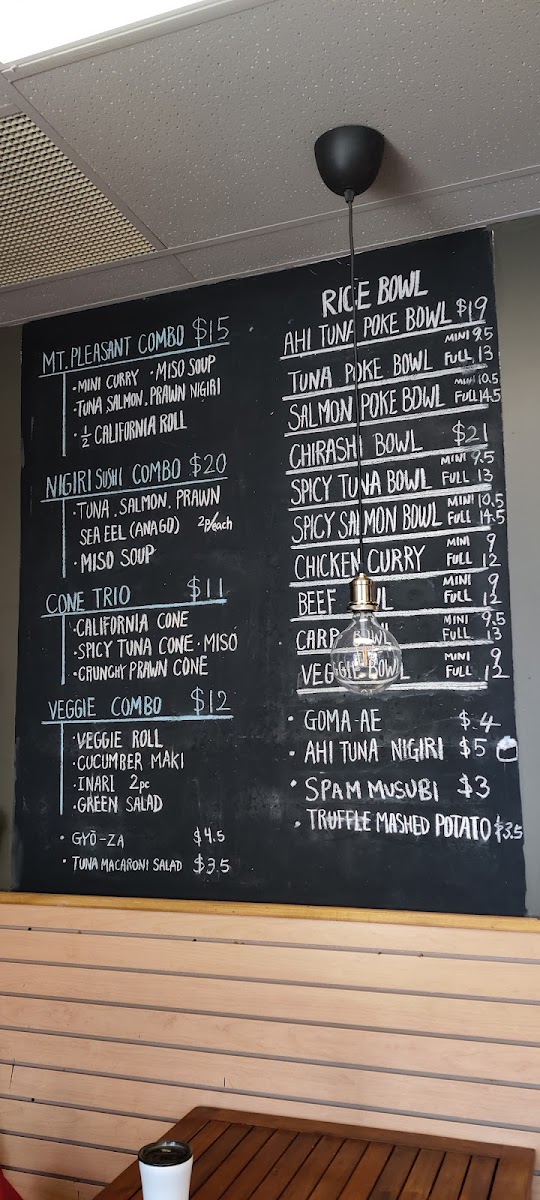 MT. PLEASANT COMBO $15
• MINI CURRY • MISO SOUP
• TUNA SALMON. PRAWN NIGIRI
• ½ CALIFORNIA ROLL
NIGIRI SUSHI COMBO $20
• TUNA . SALMON. PRAWN
SEA EEL (ANAGO) 2P/each
• MISO SOUP
CONE TRIO $11
• CALIFORNIA CONE
• SPICY TUNA CONE • MISO
• CRUNCHY PRAWN CONE
VEGGIE COMBO $12
• VEGGIE ROLL
• CUCUMBER MAKI
• INARI 2pc
• GREEN SALAD
• GYŌ-ZA $4.5
• TUNA MACARONI SALAD $3.5
RICE BOWL
AHI TUNA POKE BOWL $19
TUNA POKE BOWL MINI 9.5 FULL 13
SALMON POKE BOWL MINI 10.5 FULL 14.5
CHIRASHI BOWL $21
SPICY TUNA BOWL MINI 9.5 FULL 13
SPICY SALMON BOWL MINI 10.5 FULL 14.5
CHICKEN CURRY MINI 9 FULL 12
BEEF MINI 9 FULL 12
BOWL MINI 9.5 FULL 13
VEGGIE BOWL MINI 9 FULL 12
• GOMA-AE $.4
• AHI TUNA NIGIRI $5
• SPAM MUSUBI $3
• TRUFFLE MASHED POTATO $3.5